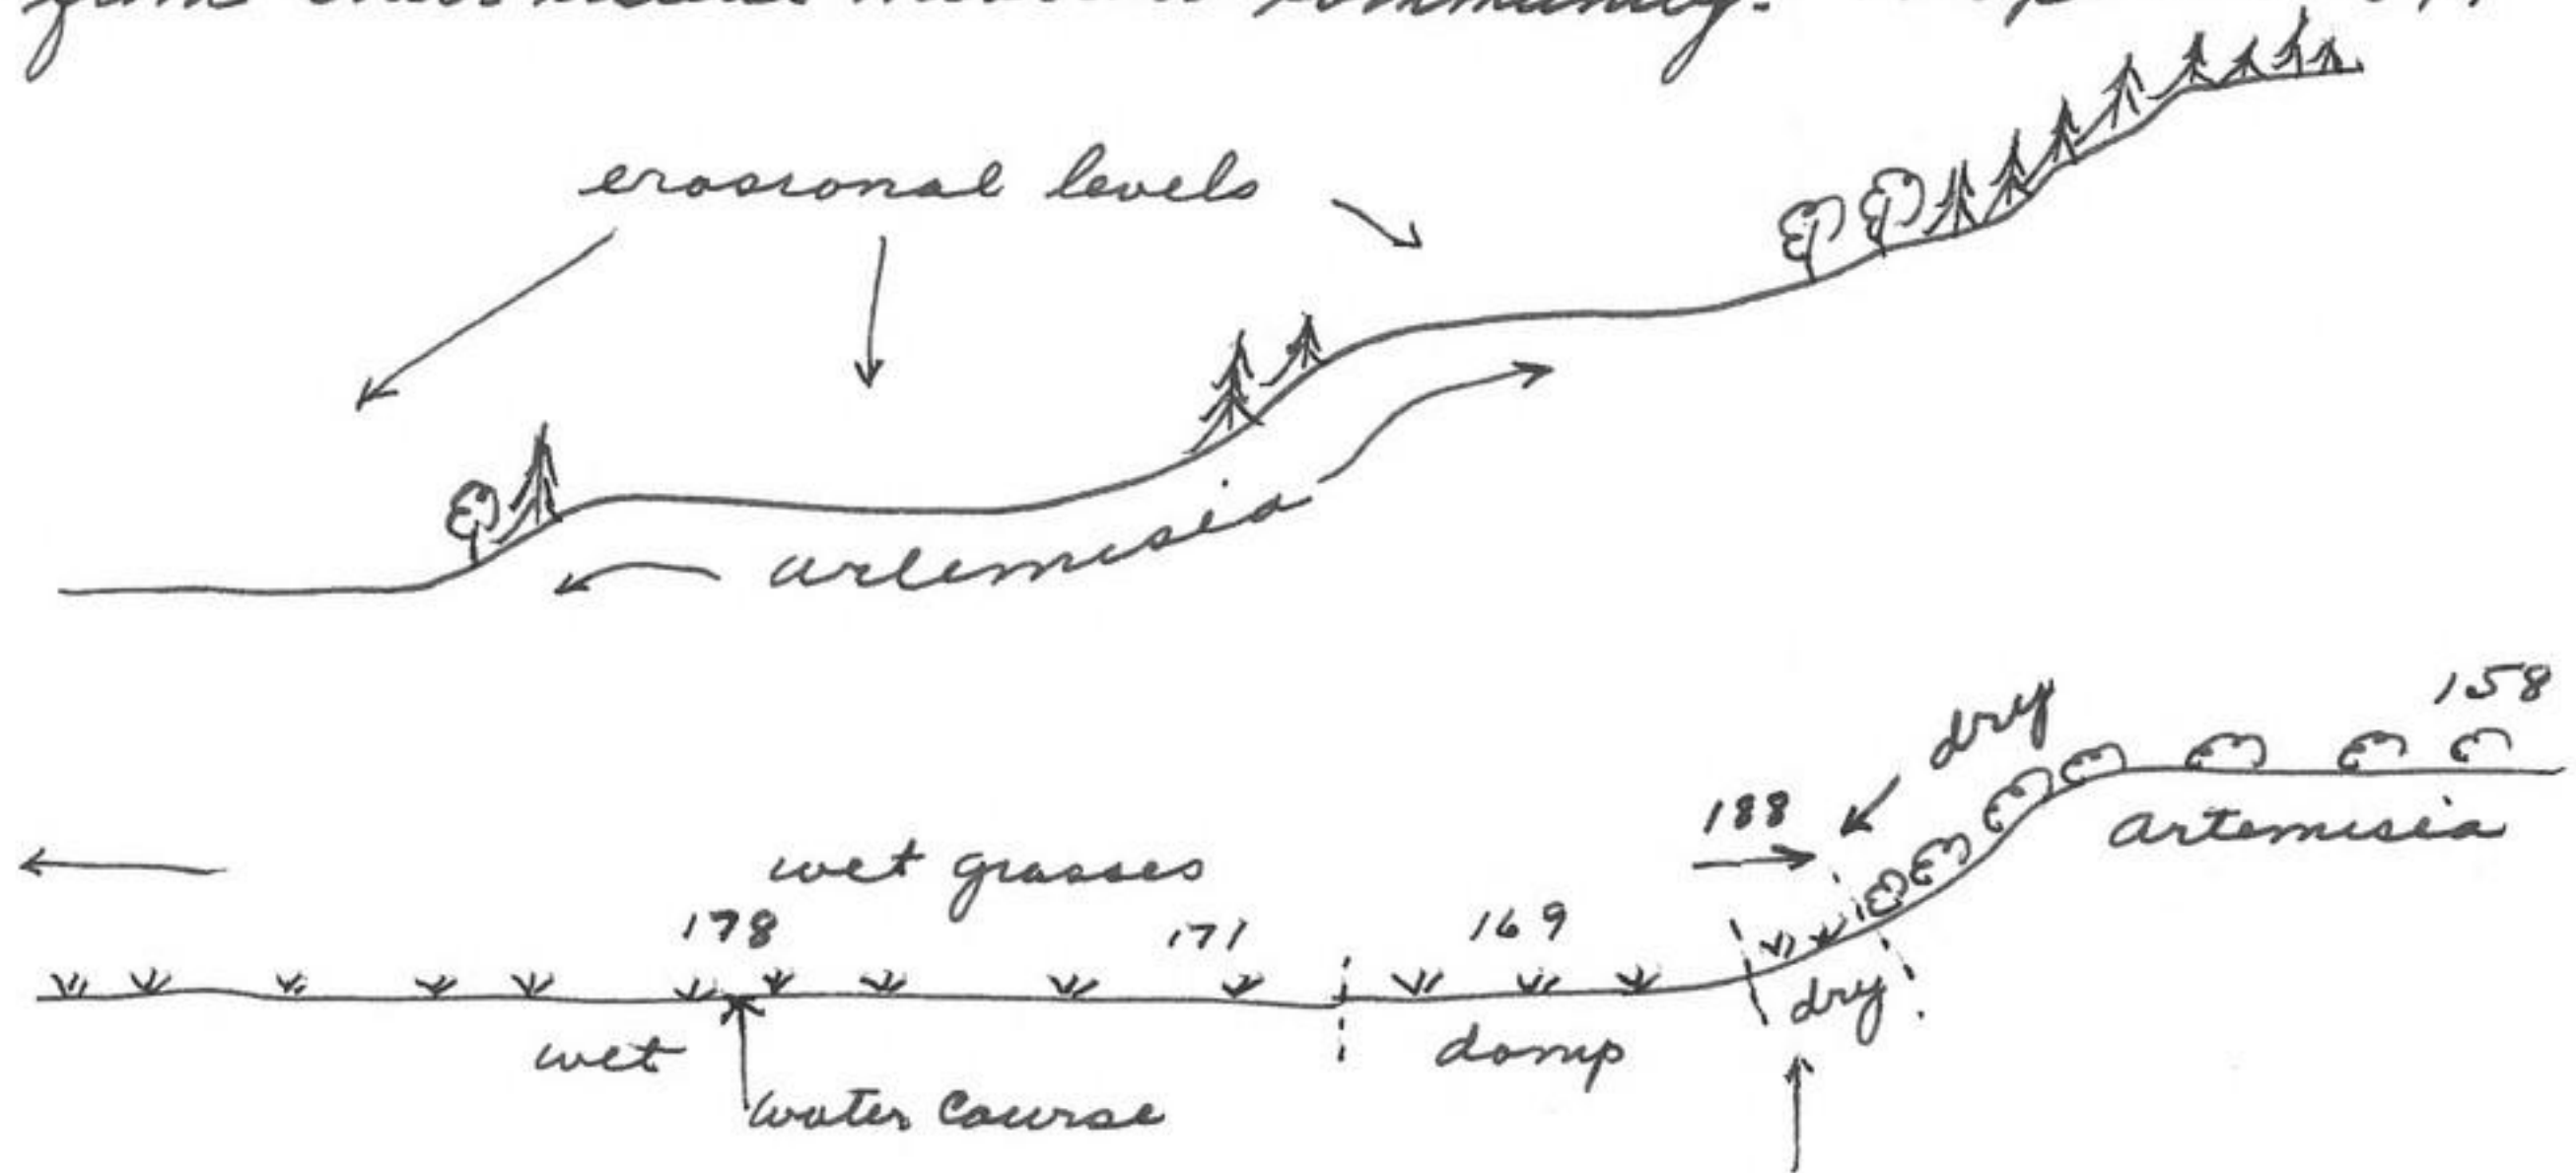 community.
erosional levels
artemisia
158
dry
188
artemisia
wet grasses
178 171 169
dry
wet damp
water course